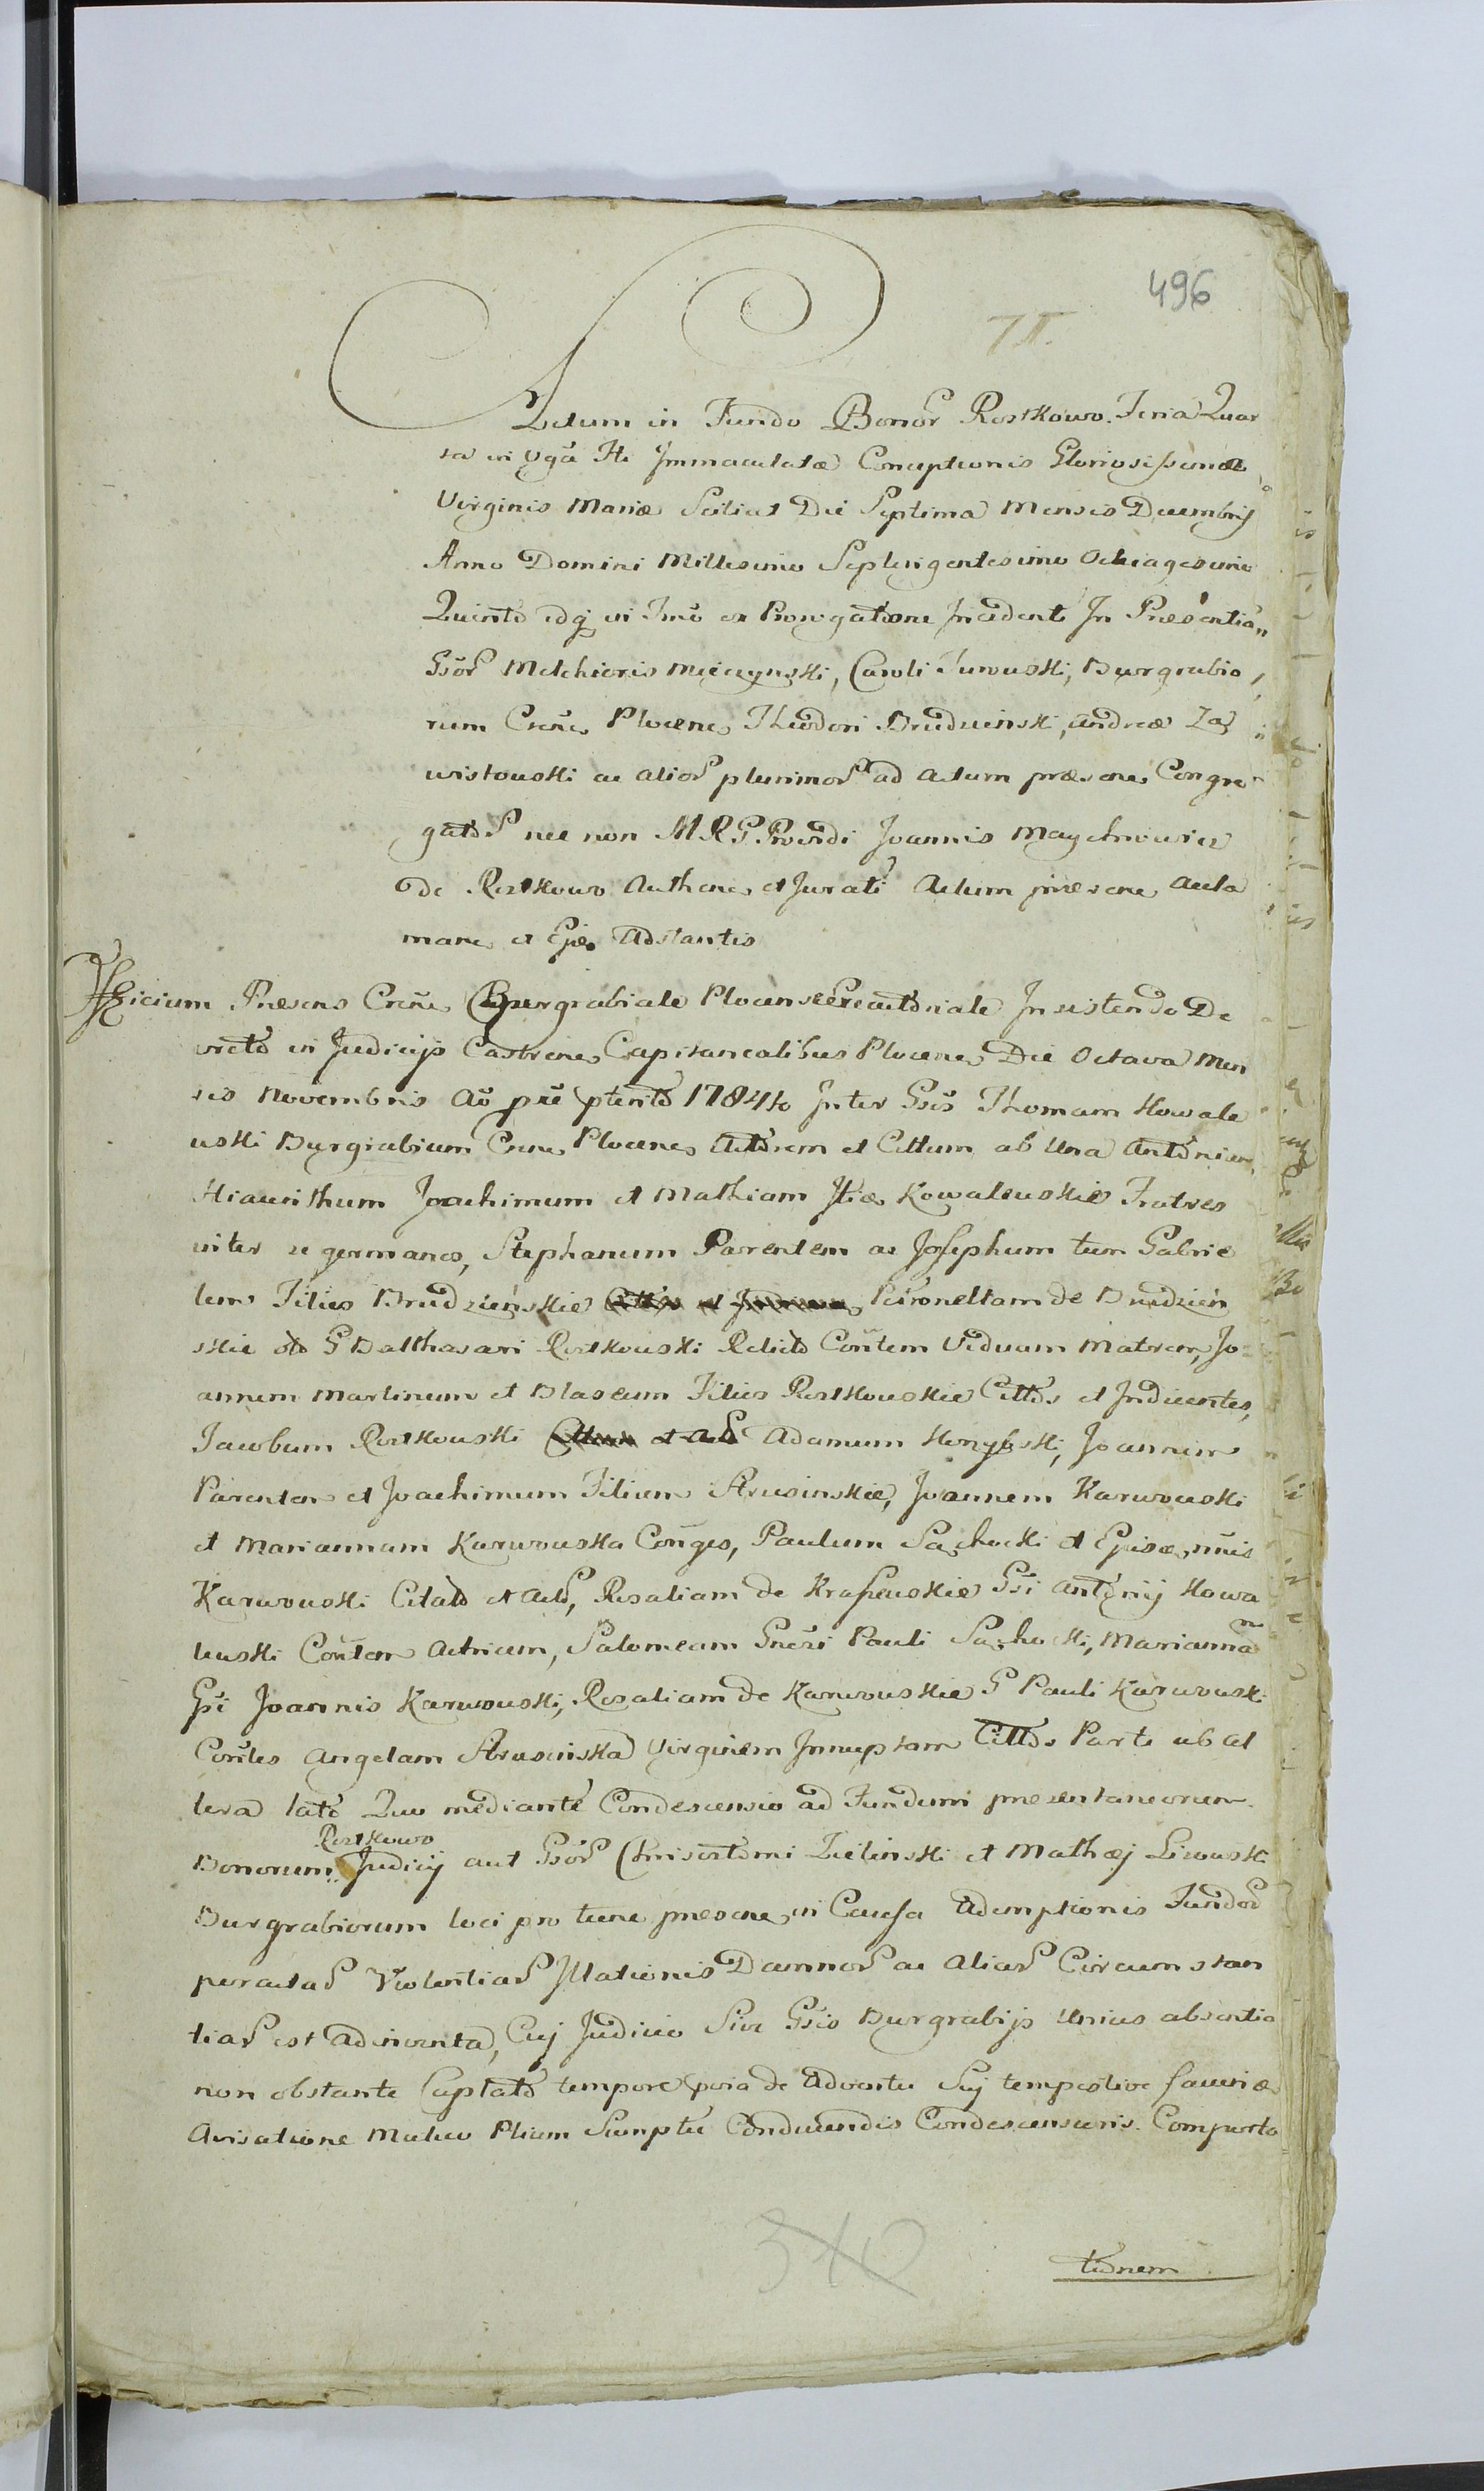 496
Actum in Fundo Bonor Rostkowo. Feria Quar
ta in Vgã Fti Immaculatæ Conceptionis Gloriosissimæ
Virginis Mariæ Scilicet Die Septima Mensis Decembris
Anno Domini Millesimo Septingentesimo Octuagesimo
Quinto idq in ex Prorogatione Incidenti In Præsentia
Gsor Melchioris Mieczynski, Caroli Turowski, Burgrabio
rum Crens Plocens Theodori Brudzinski, Andreæ Za
wistowski ac alior plurimor ad Actum præsens Congre
gator nec non M R G Providi Joannis Maychrowicz
de Rostkowo Authens et Jurati Actum præsens Acla
mans et Ejs Adstantis
Officium Præsens Crens Burgrabiale Plocense Executoriale Insistendo De
creto in Judicijs Castrens Capitanealibus Plocens Die Octava Men
sis Novembris Ao pter 1784to Inter Gsis Thomam Kowale
wski Burgrabium Crens Plocens Actorem et Cittum ab Una Antonium
Hiacinthum Joachimum et Mathiam Kowalewskie Fratres
inter se germanos, Stephanum Parentem ac Josephum tum Gabrie
lem Filios Brudzienskie Petronellam de Brudzien
skie G Balthasari Rostkowski Relicto Contem Viduam Matrem, Jo
annem Martinum et Blasium Filios Rostkowskie Cittos et Inducentes,
Jacobum Rostkowski Adamum Korzybski, Joannem
Parentem et Joachimum Filium Strusinskie, Joannem Karwowski
et Mariannam Karwowska Conges, Paulum Sachocki et
Karwowski Citato et Acto, Rosaliam de Krassewskie Gsi Antonij Kowa
lewski Contem Actricem, Salomeam Gnersi Pauli Sachocki, Mariannam
Gsi Joannis Karwowski, Rosaliam de Karwowskie G Pauli Karwowski
Contes Angelam Strusinska Virginem Innuptam Cittos Parte ab al
tera lato Quo mediante Condescensio ad Fundum præsentaneorum
Rostkowo
Bonorum Judicij aut Gsor Chrisostomi Zielinski et Mathæj Lisowski
Burgrabiorum loci pro tunc præsens in Causa Ademptionis Fundor
peractar Violentiar Illationis Damnor ac aliar Circumstan
tiar est adinventa, Cuj Judicio Sive Gsis Burgrabijs Unius absentia
non obstante Captato tempore de Adventu Suj tempestive
Avisatione Mutuo Ptium Sumptu Conducendis Condescensoris. Comporta
tionem